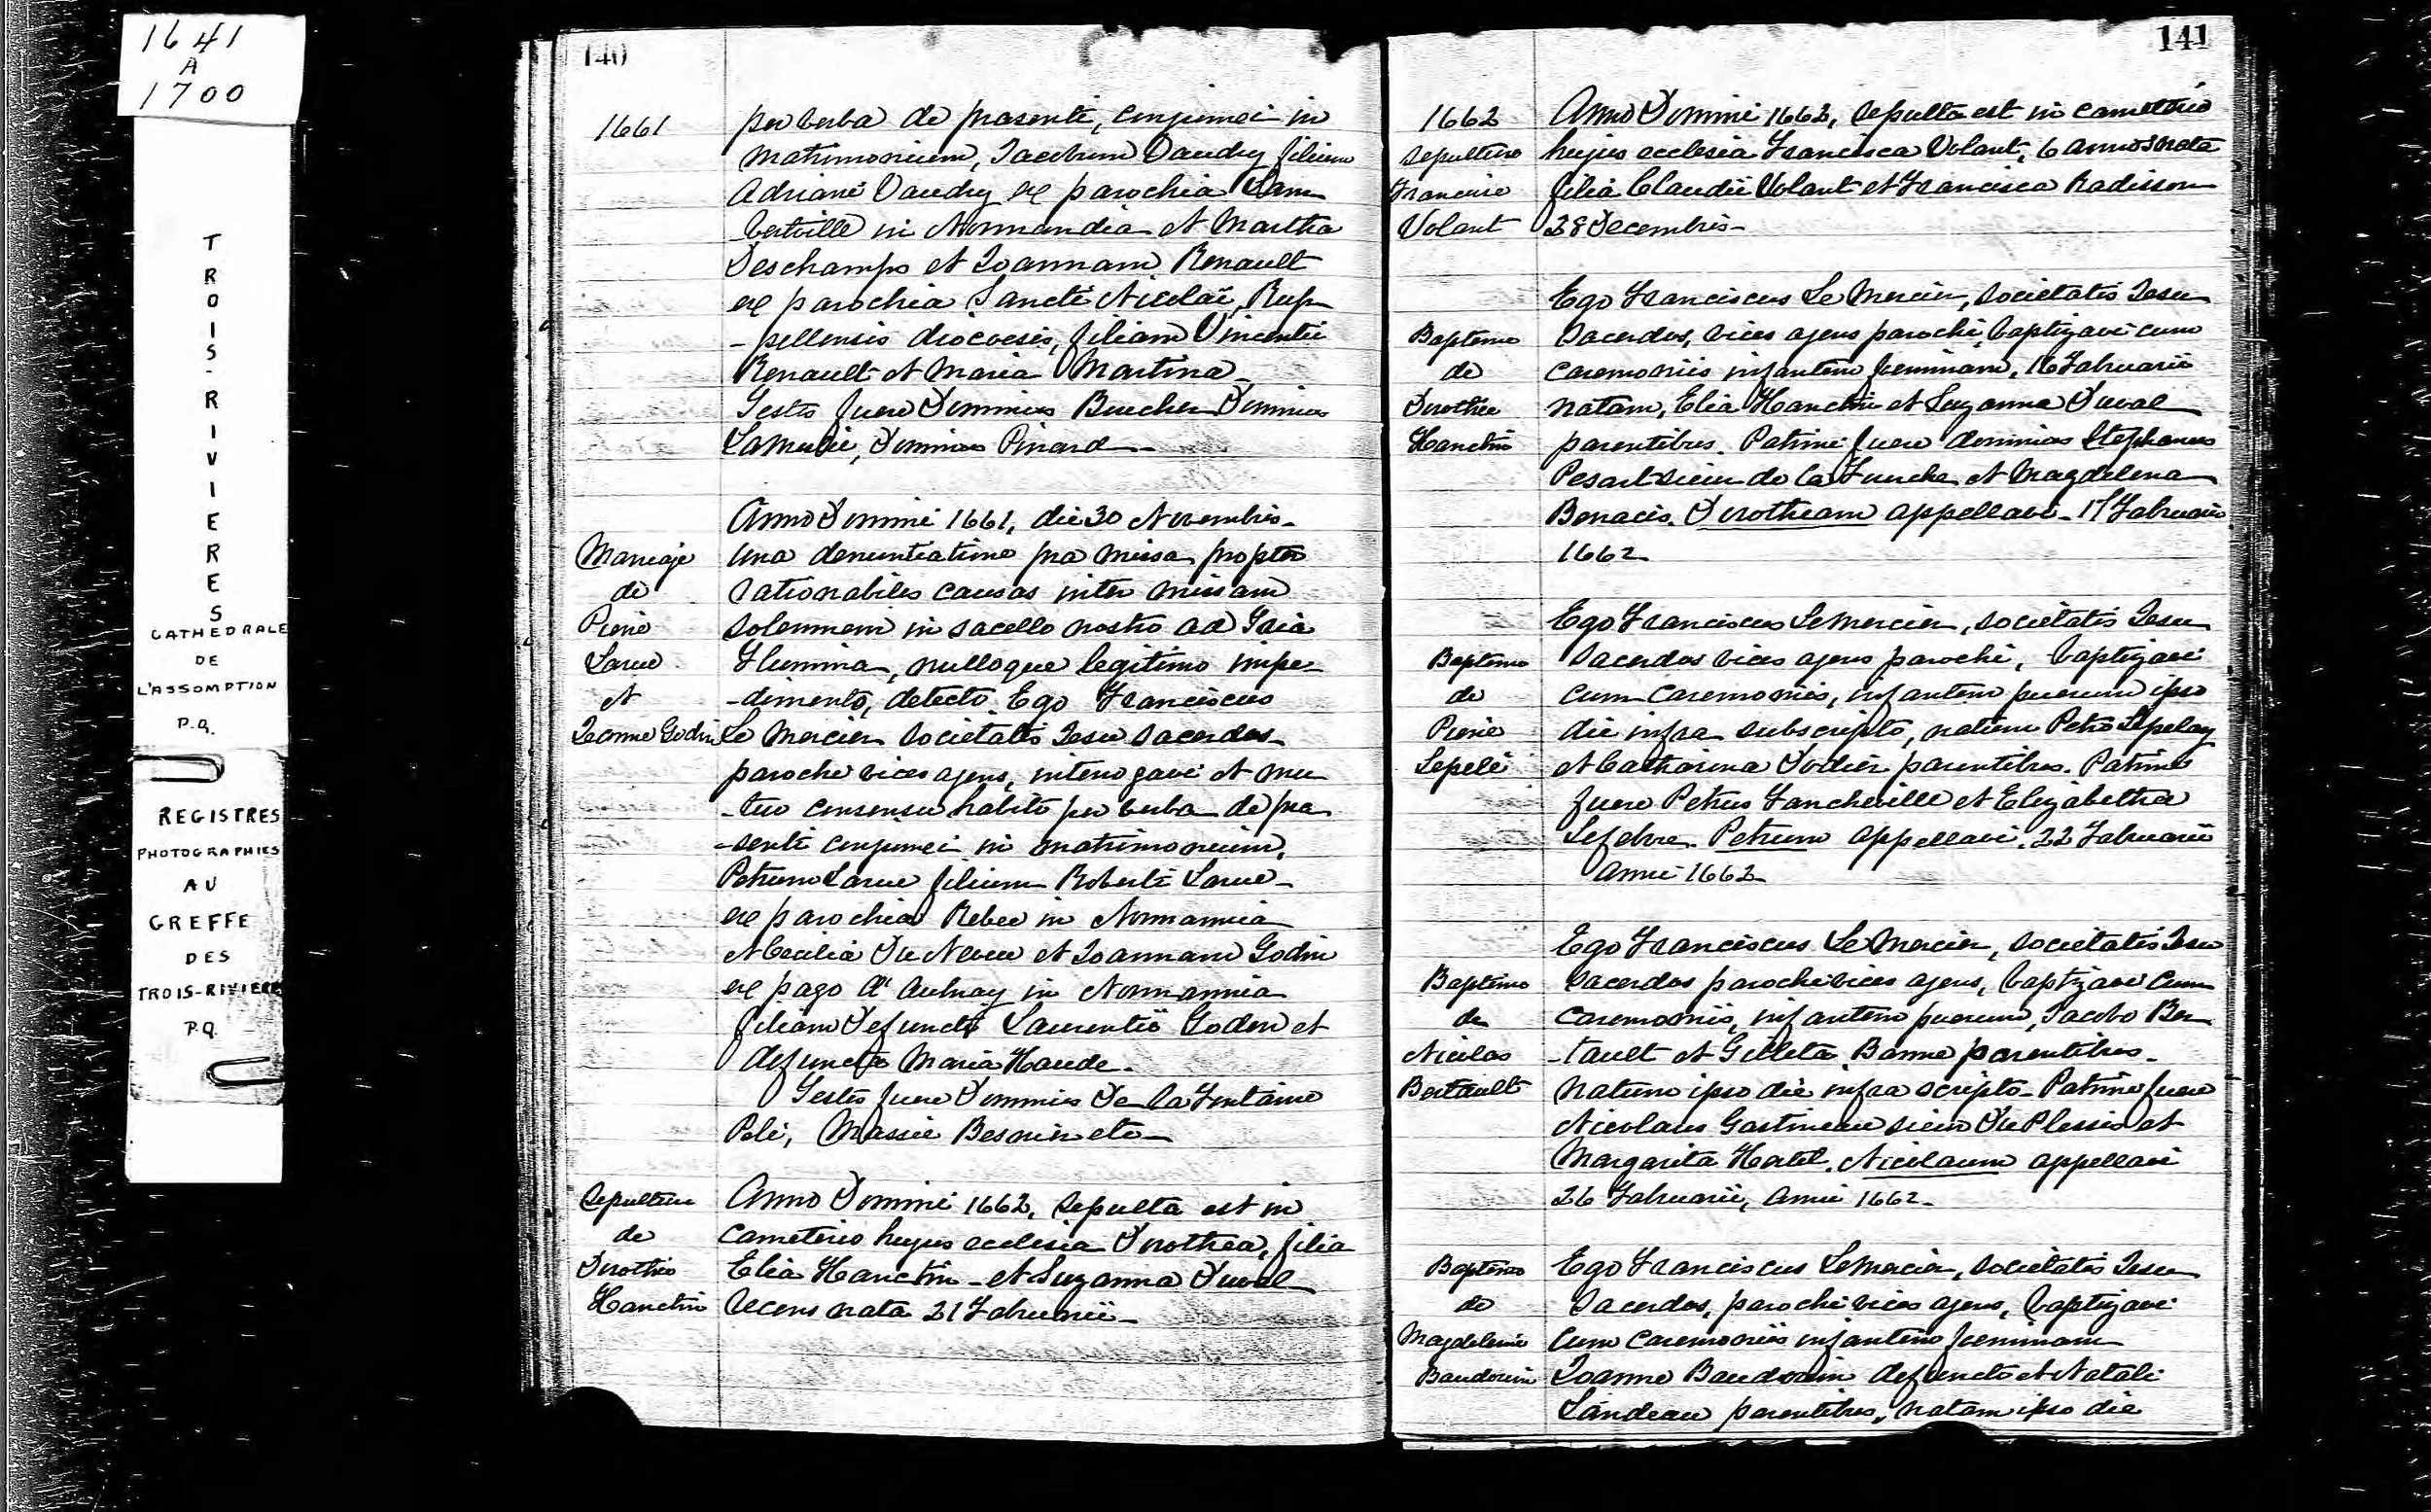 1641
A
1700
TROIS-RIVIERES
CATHEDRALE
DE
L'ASSOMPTION
P.Q.
REGISTRES
PHOTOGRAPHIES
AU
GREFFE
DES
TROIS-RIVIERES
P.Q.
140
1661
per verba de præsenti, conjunxi in
matrimonium, Jacobum Vaudry filium
Adriani Vaudry ex parochia Lam
berville in Normandia et Martha
Deschamps et Joannam Renault
ex parochia Sancti Nicolaï, Rup
-pellensis diocoesis, filiam Vincentii
Renault et Maria Martina
Testes fuere Dominus Boucher Dominus
Lameslée, Dominus Pinard
Mariage
de
Pierre
Larue
et
Jeanne Godin
Anno Domini 1661, die 30 Novembris
una denuntiatione præmissa propter
rationabiles causas inter missam
solemnem in sacello nostro ad Tria
Flumina, nulloque legitimo impe
-dimento, detecto. Ego Franciscus
Le Mercier societatis Jesu sacerdos
parochi vices agens, interrogavi et mu
-tuo consensu habito per verba de præ
-senti conjunxi in matrimonium,
Petrum Larue filium Roberti Larue
ex parochia Rebec in Normannia
et Cecilia De Neveu et Joannam Godin
ex pago d'Aulnay in Normannia
filiam defuncti Laurentii Godin et
defuncta Maria Haude.
Testes fuere Dominus De la Fontaine
Polé, Massie Besnin etc
Sepulture
de
Dorothée
Hanctin
Anno Domini 1662, sepulta est in
cæmeterio hujus ecclesiæ Dorothea, filia
Elia Hanctin et Suzanna Duval
recens nata 21 Februarii
141
1662
Sepulture
Francoise
Volant
Anno Domini 1662, sepulta est in cæmeterio
hujus ecclesia Francisca Volant, 6 annos nata
filia Claudii Volant et Francisca Radisson
28 Decembris
Bapteme
de
Dorothée
Hanctin
Ego Franciscus Le Mercier, societatis Jesu
sacerdos, vices agens parochi, baptizavi cum
cæremoniis infantem foeminam, 16 Februarii
natam, Elia Hanctin et Suzanna Duval
parentibus. Patrini fuere dominus Stephanus
Pesart sieur de la Touche et Magdelena
Benacis. Dorotheam appellavi. 17 Februarii
1662
Bapteme
de
Pierre
Lepelé
Ego Franciscus LeMercier, societatis Jesu
sacerdos vices agens parochi, baptizavi
cum cæremoniis, infantem puerum ipso
die infra subscripto, natum Petro Lepelay
et Catharina Dodier parentibus. Patrini
fuere Petrus Fancheville et Elizabetha
Lefebvre. Petrum appellavi. 22 Februarii
anni 1662
Bapteme
de
Nicolas
Bertault
Ego Franciscus Le Mercier, societatis Jesu
sacerdos parochi vices agens, baptizavi cum
cæremoniis, infantem puerum, Jacobo Ber
-tault et Gilleta Banne parentibus.
natum ipso die infra scripto. Patrini fuere
Nicolaus Gastineau sieur Du Plessis et
Margarita Hertel. Nicolaum appellavi
26 Februarii, anni 1662.
Bapteme
de
Magdeleine
Baudouin
Ego Franciscus LeMercier, societatis Jesu
sacerdos, parochi vices agens, baptizavi
cum cæremoniis infantem foeminam
Joanne Baudouin defuncto et Natali
Landeau parentibus, natam ipso die